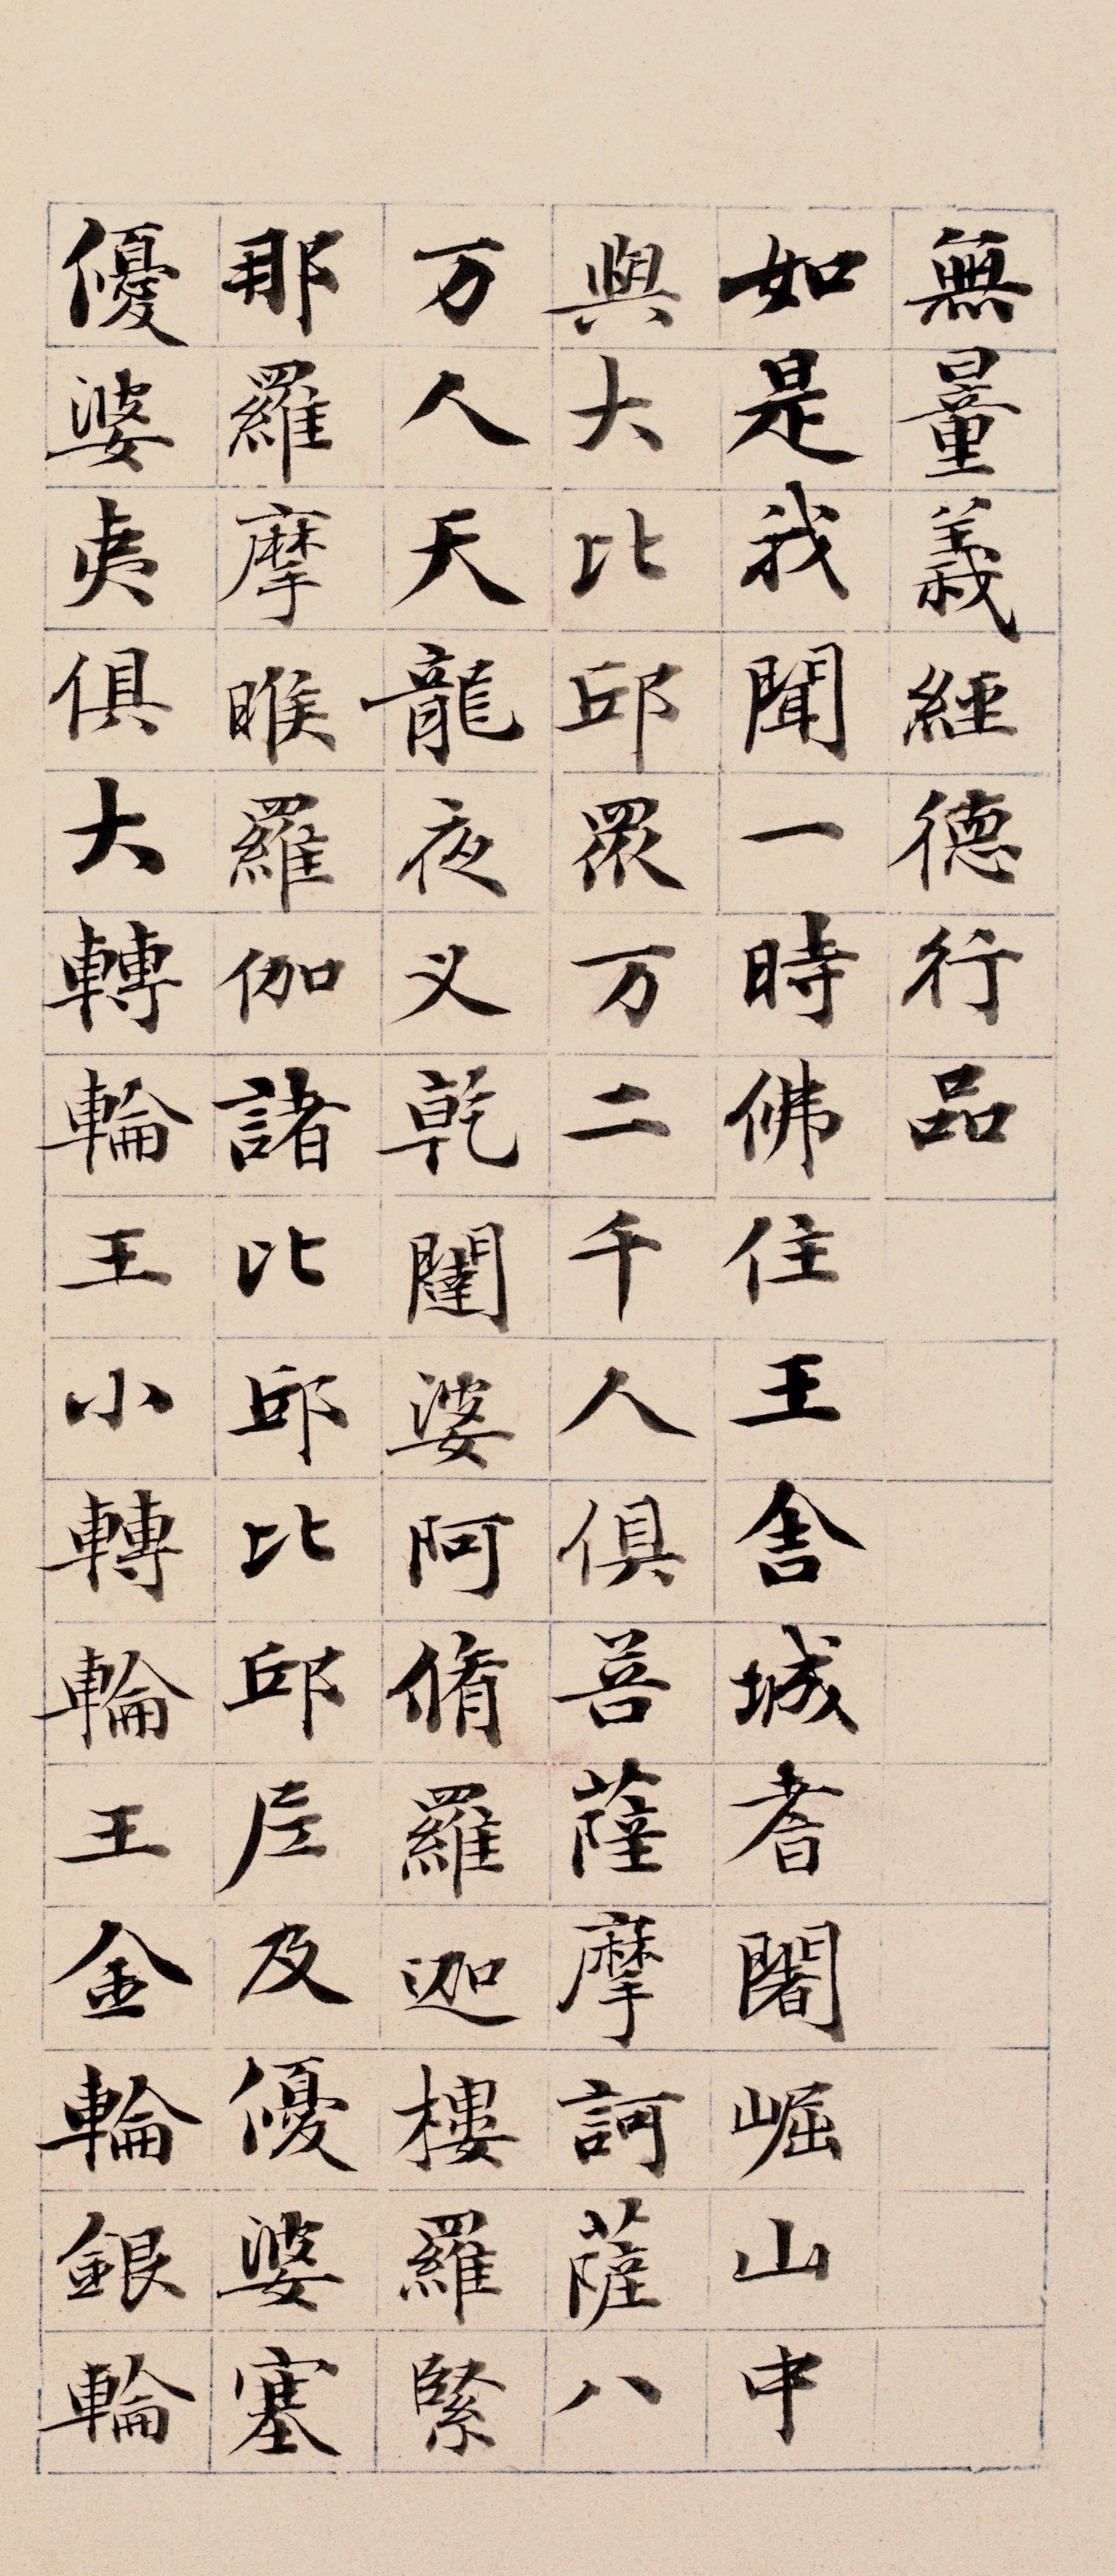 無量義經德行品
如是我聞一時佛住王舍城耆闍崛山中
與大比邱眾万二千人俱菩薩摩訶薩八
万人天龍夜叉乾闥婆阿脩羅迦樓羅緊
那羅摩睺羅伽諸比邱比邱尼及優婆塞
優婆夷俱大轉輪王小轉輪王金輪銀輪